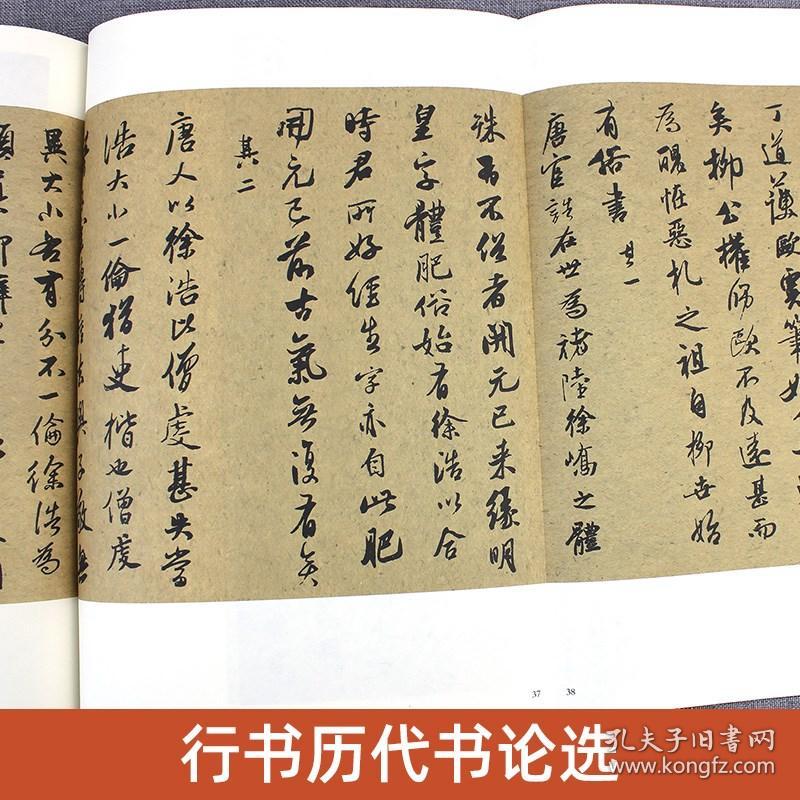 丁道護歐虞筆始
矣柳公權師歐不及遠甚而
為醜怪惡札之祖自柳世始
有俗書 其一
唐官誥在世為褚陸徐嶠之體
殊有不俗者開元已來緣明
皇字體肥俗始有徐浩以合
時君所好經生字亦自此肥
開元已前古氣無復有矣
其二
唐人以徐浩比僧虔甚失當
浩大小一倫猶吏楷也僧虔
法與子敬無
異大小各有分不一倫徐浩為
真卿辟
37 38
行书历代书论选
孔夫子旧书网
www.kongfz.com